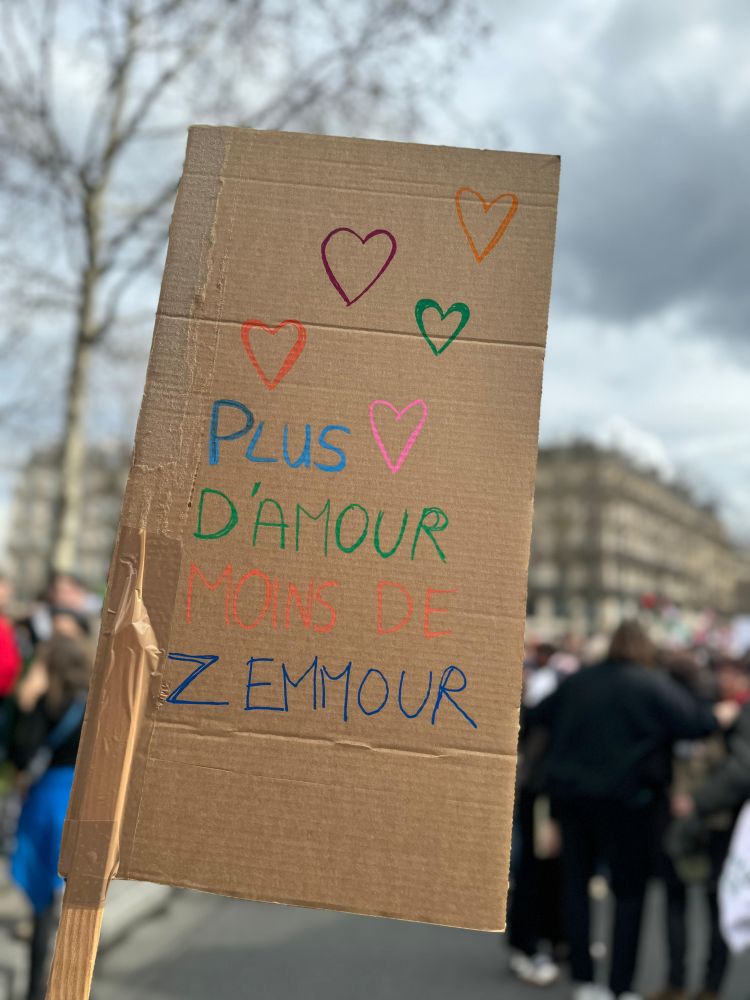 PLUS
D'AMOUR
MOINS DE
ZEMMOUR